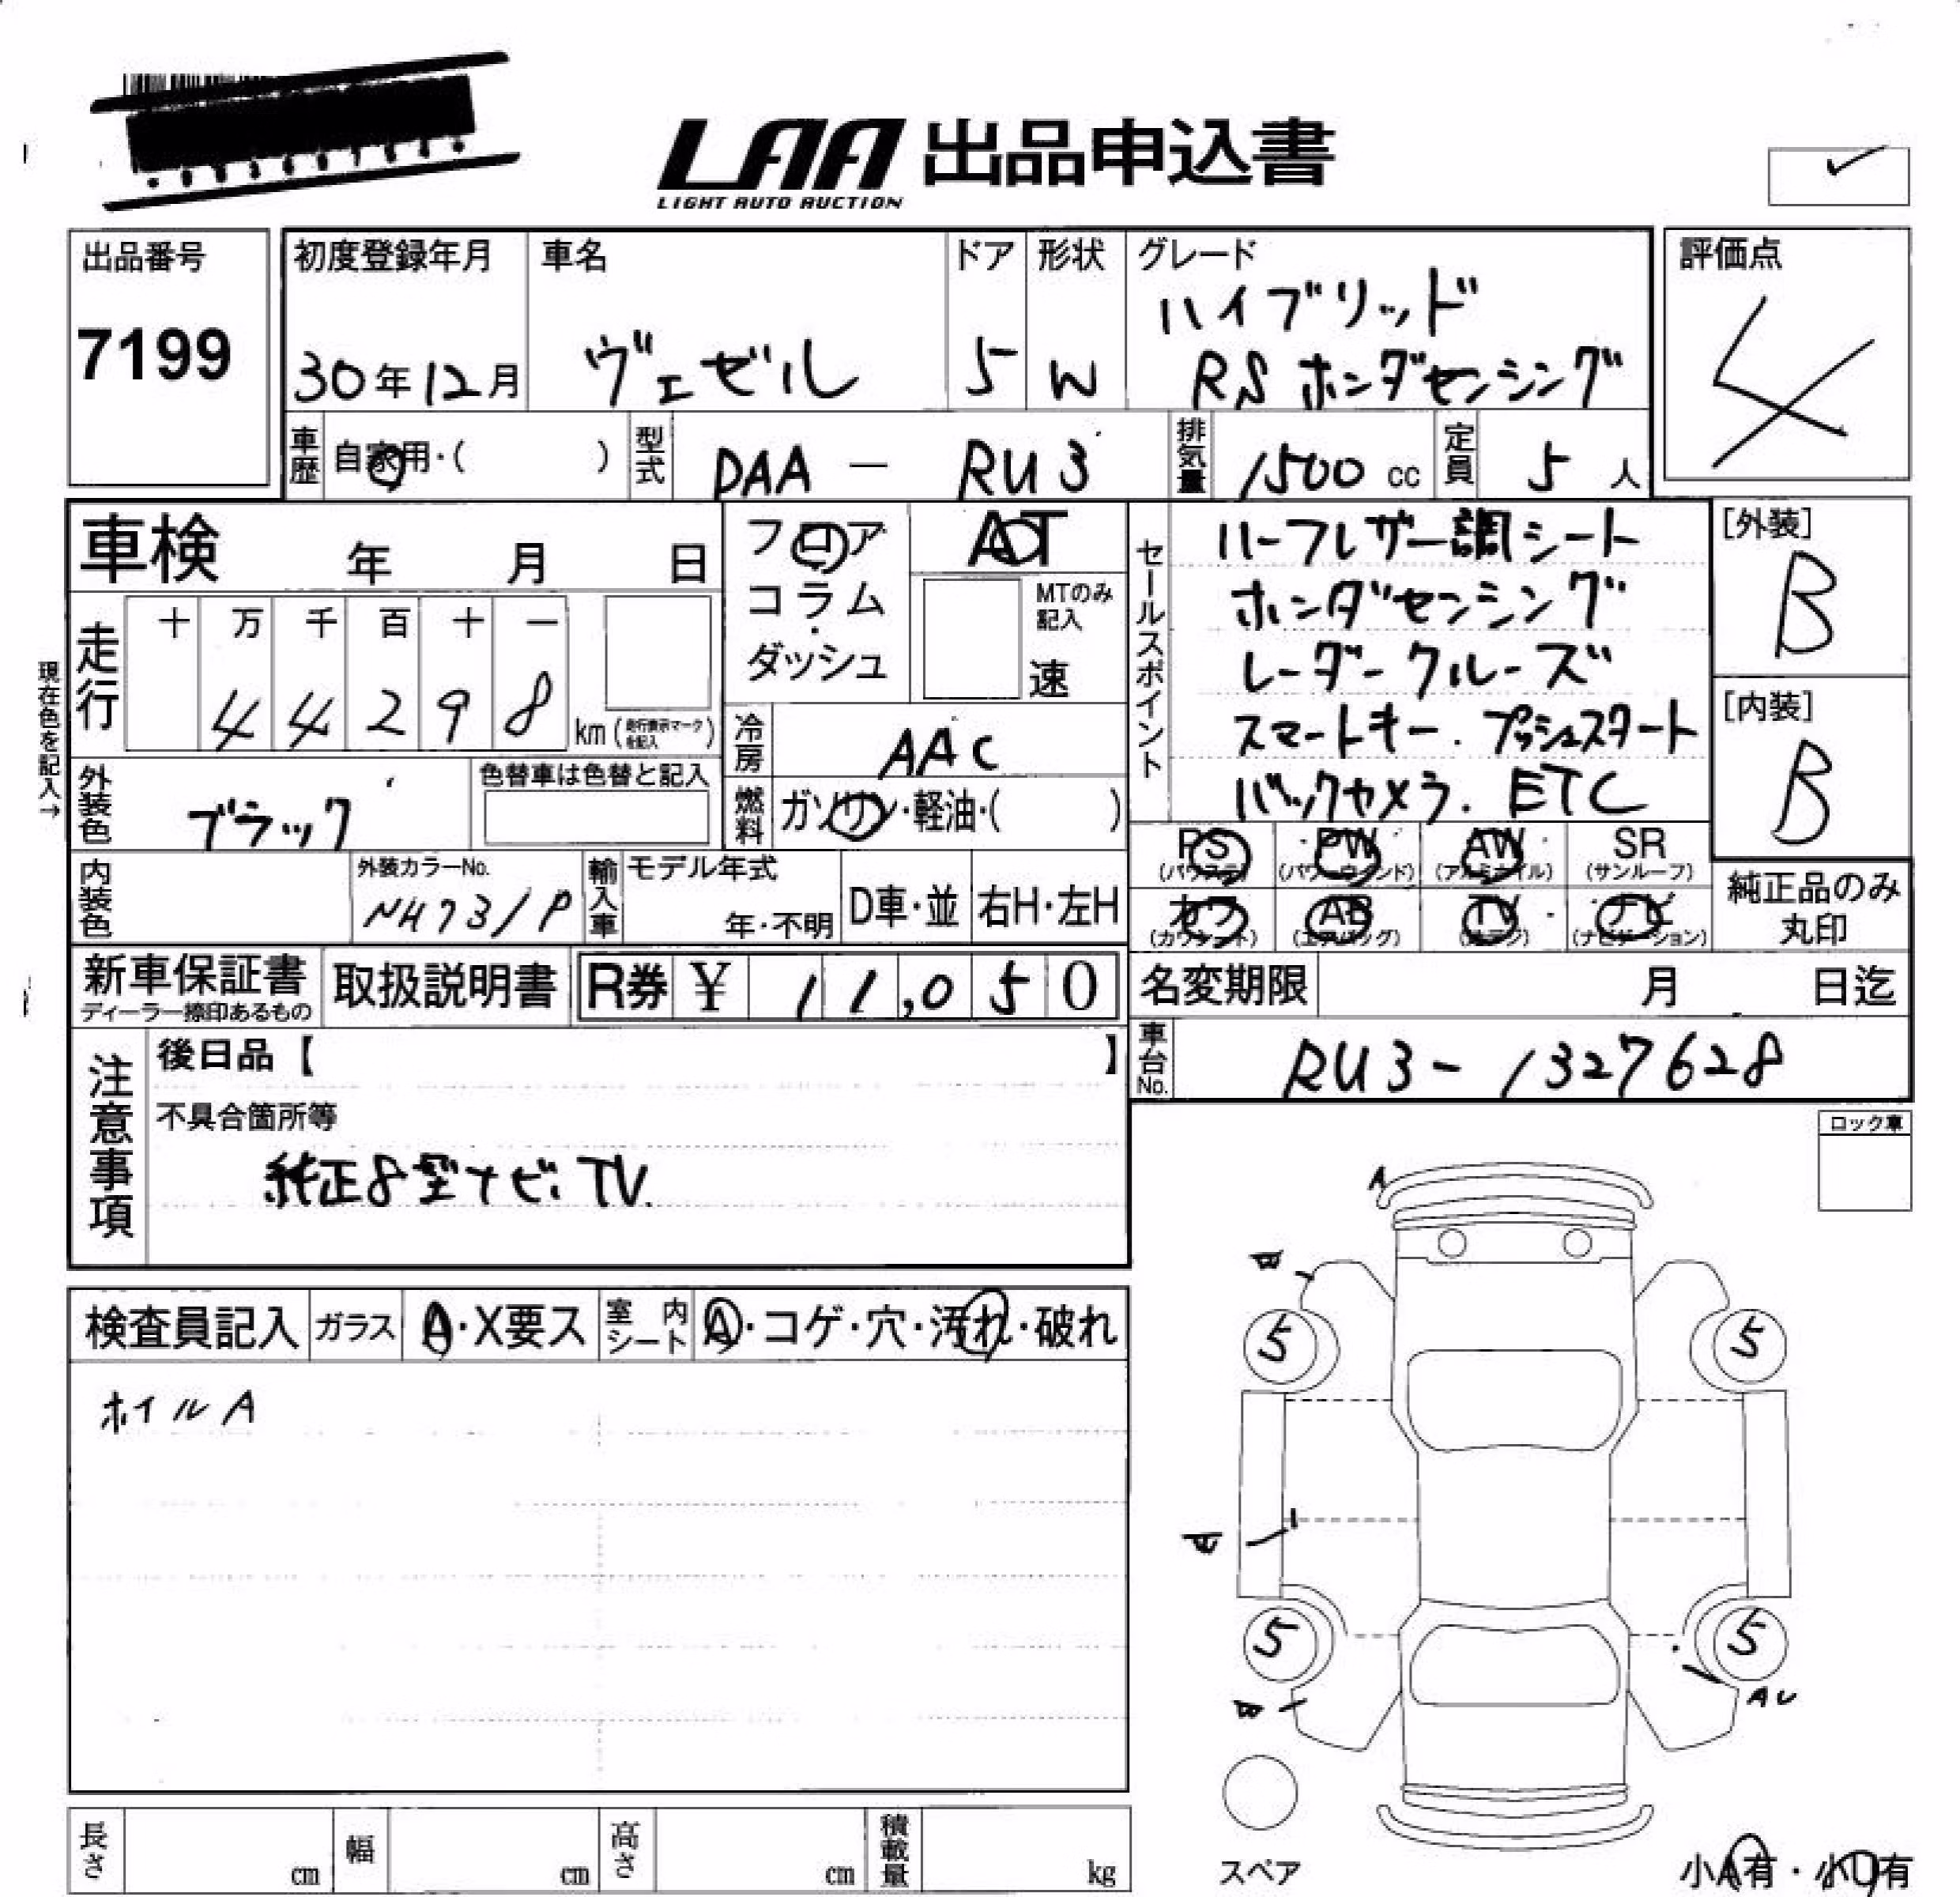 LAA 出品申込書
LIGHT AUTO AUCTION
出品番号
7199
初度登録年月
30年12月
車名
ヴェゼル
ドア
5
形状
W
グレード
ハイブリッド
RS ホンダセンシング
評価点
4
車歴
自家用・( )
型式
DAA - RU3
排気量
1500 cc
定員
5 人
車検 年 月 日
フロア
コラム
・
ダッシュ
AT
MTのみ
記入
速
走行
十 万 千 百 十 一
4 4 2 9 8 km (走行表示マークを記入)
現在色を記入→
外装色
ブラック
色替車は色替と記入
冷房
AAC
燃料
ガソリン・軽油・( )
内装色
外装カラーNo.
NH731P
輸入車
モデル年式
年・不明
D車・並
右H・左H
セールスポイント
ハーフレザー調シート
ホンダセンシング
レーダークルーズ
スマートキー.プッシュスタート
バックカメラ. ETC
[外装]
B
[内装]
B
PS
(パワステ)
PW
(パワーウインド)
AW
(アルミホイル)
SR
(サンルーフ)
カワ
(カワシート)
AB
(エアバッグ)
TV
ナビ
(ナビゲーション)
純正品のみ
丸印
新車保証書
ディーラー捺印あるもの
取扱説明書
R券 ¥ 11,050
名変期限 月 日迄
車台No.
RU3-1327628
注意事項
後日品【 】
不具合箇所等
純正8型ナビ.TV.
ロック車
検査員記入
ガラス
A・X要ス
室内シート
A・コゲ・穴・汚れ・破れ
ホイルA
A
A
5
5
A
5
5
A
AU
スペア
小A有・小U有
長さ cm
幅 cm
高さ cm
積載量 kg